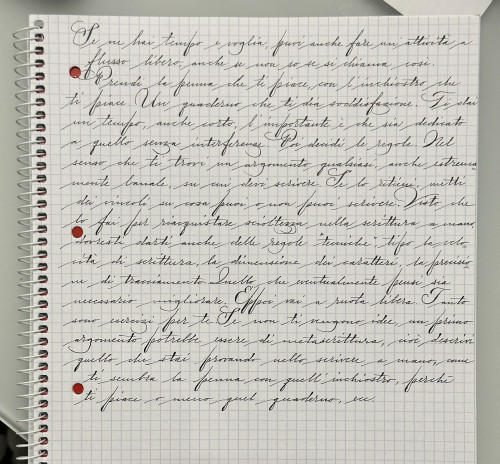 Se ne hai tempo e voglia puoi anche fare un'attività a
flusso libero, anche se non so se si chiama così.
Prendi la penna che ti piace, con l'inchiostro che
ti piace. Un quaderno che ti dia soddisfazione. Ti dai
un tempo, anche corto, l'importante è che sia dedicato
a quello senza interferenze. Poi decidi le regole. Nel
senso che ti trovi un argomento qualsiasi, anche estrema
mente banale, su cui devi scrivere. Se lo ritieni, metti
dei vincoli su cosa puoi o non puoi scrivere. Visto che
lo fai per riacquistare scioltezza nella scrittura a mano,
dovresti darti anche delle regole "tecniche" tipo la velo
cità di scrittura, la dimensione dei caratteri, la precisio
ne di tracciamento. Quello che eventualmente pensi sia
necessario migliorare. Eppoi vai a ruota libera. Tanto
sono esercizi per te. Se non ti vengono idee, un primo
argomento potrebbe essere di metascrittura, voi descrivi
quello che stai provando nello scrivere a mano, come
ti sembra la penna con quell'inchiostro, perché
ti piace o meno quel quaderno, ecc.